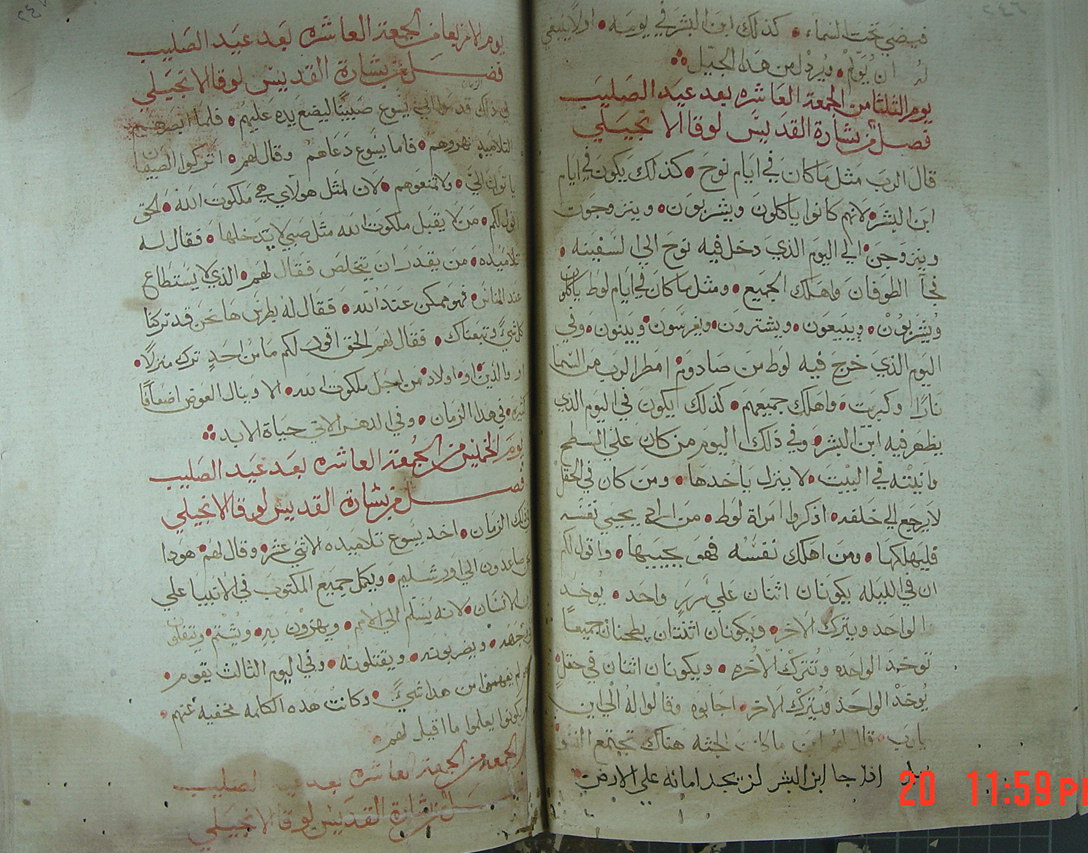 فيضي تحت السماء كذلك ابن البشر في يوميه اولا ينبغي
له ان يولم ويرذل من هذا الجيل
يوم الثلثا من الجمعة العاشره بعد عيد الصليب
فصل من بشارة القديس لوقا الانجيلي
قال الرب مثل ما كان في ايام نوح كذلك يكون في ايام
ابن البشر لانهم كانوا ياكلون ويشربون ويتزوجون
ويتزوجن الي اليوم الذي دخل فيه نوح الي السفينه
فجا الطوفان واهلك الجميع ومثل ما كان في ايام لوط ياكلون
ويشربون ويبيعون ويشترون ويغرسون ويبنون وفي
اليوم الذي خرج فيه لوط من صادوم امطر الرب من السما
نارا وكبريت واهلك جميعهم كذلك يكون في اليوم الذي
يظهر فيه ابن البشر وفي ذلك اليوم من كان علي السطح
وانيته في البيت لا ينزل ياخدها ومن كان في الحقل
لا يرجع الي خلفه اذكروا امراة لوط من اراد يحيي نفسه
فليهلكها ومن اهلك نفسه فهو يحييها واقول لكم
ان في الليله يكونان اثنان علي سرير واحد يوخد
الواحد ويترك الاخر ويكونان اثنتان يطحنان جميعا
توخد الواحده وتترك الاخره ويكونان اثنان في حقل
يوخد الواحد ويترك الاخر اجابوه وقالوا له الي اين
يارب قال لهم اين ما كانت الجثه هناك تجتمع النسور
اذا جا ابن البشر لن يجد امانه علي الارض
يوم الاربعا من الجمعة العاشره بعد عيد الصليب
فصل من بشارة القديس لوقا الانجيلي
في ذلك قدموا الي يسوع صبيانا ليضع يده عليهم فلما ابصرهم
التلاميد نهروهم فاما يسوع دعاهم وقال لهم اتركوا الصبيان
ياتون الي ولا تمنعوهم لان لمثل هولاي هي ملكوت الله الحق
اقول لكم من لا يقبل ملكوت الله مثل صبي لا يدخلها فقال له
تلاميذه من يقدر ان يتخلص فقال لهم الذي لا يستطاع
عند الناس فهو ممكن عند الله فقال له بطرس ها نحن قد تركنا
كل شي وتبعناك فقال لهم الحق اقول لكم ما من احد ترك منزلا
او والدين او اولاد من اجل ملكوت الله الا وينال العوض اضعافا
كثيره في هذا الزمان وفي الدهر الاتي حياة الابد
يوم الخميس من الجمعة العاشره بعد عيد الصليب
فصل من بشارة القديس لوقا الانجيلي
في ذلك الزمان اخد يسوع تلاميذه الاثني عشر وقال لهم هودا
نحن صاعدون الي اورشليم ويكمل جميع المكتوب في الانبيا علي
ابن الانسان لانه يسلم الي الامم ويهزون به ويشتم ويتفلون
في وجهه ويضربونه ويقتلونه وفي اليوم الثالث يقوم
وهم لم يفهموا من هذا شي وكانت هذه الكلمه مخفيه عنهم
ولم يكونوا يعلموا ما قيل لهم
الجمعة من الجمعة العاشره بعد عيد الصليب
فصل من بشارة القديس لوقا الانجيلي
20 11:59 PM